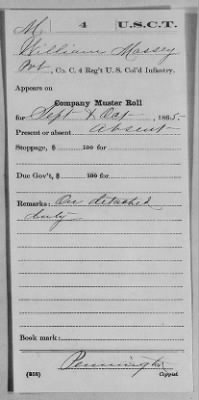 M. 4 U.S.C.T.
William Massey
Pvt, Co. C, 4 Reg't U. S. Col'd Infantry.
Appears on
Company Muster Roll
for Sept & Oct, 1865.
Present or absent Absent
Stoppage, $ 100 for
Due Gov't, $ 100 for
Remarks: On detached
duty
Book mark:
Pennington
(858) Copyist.